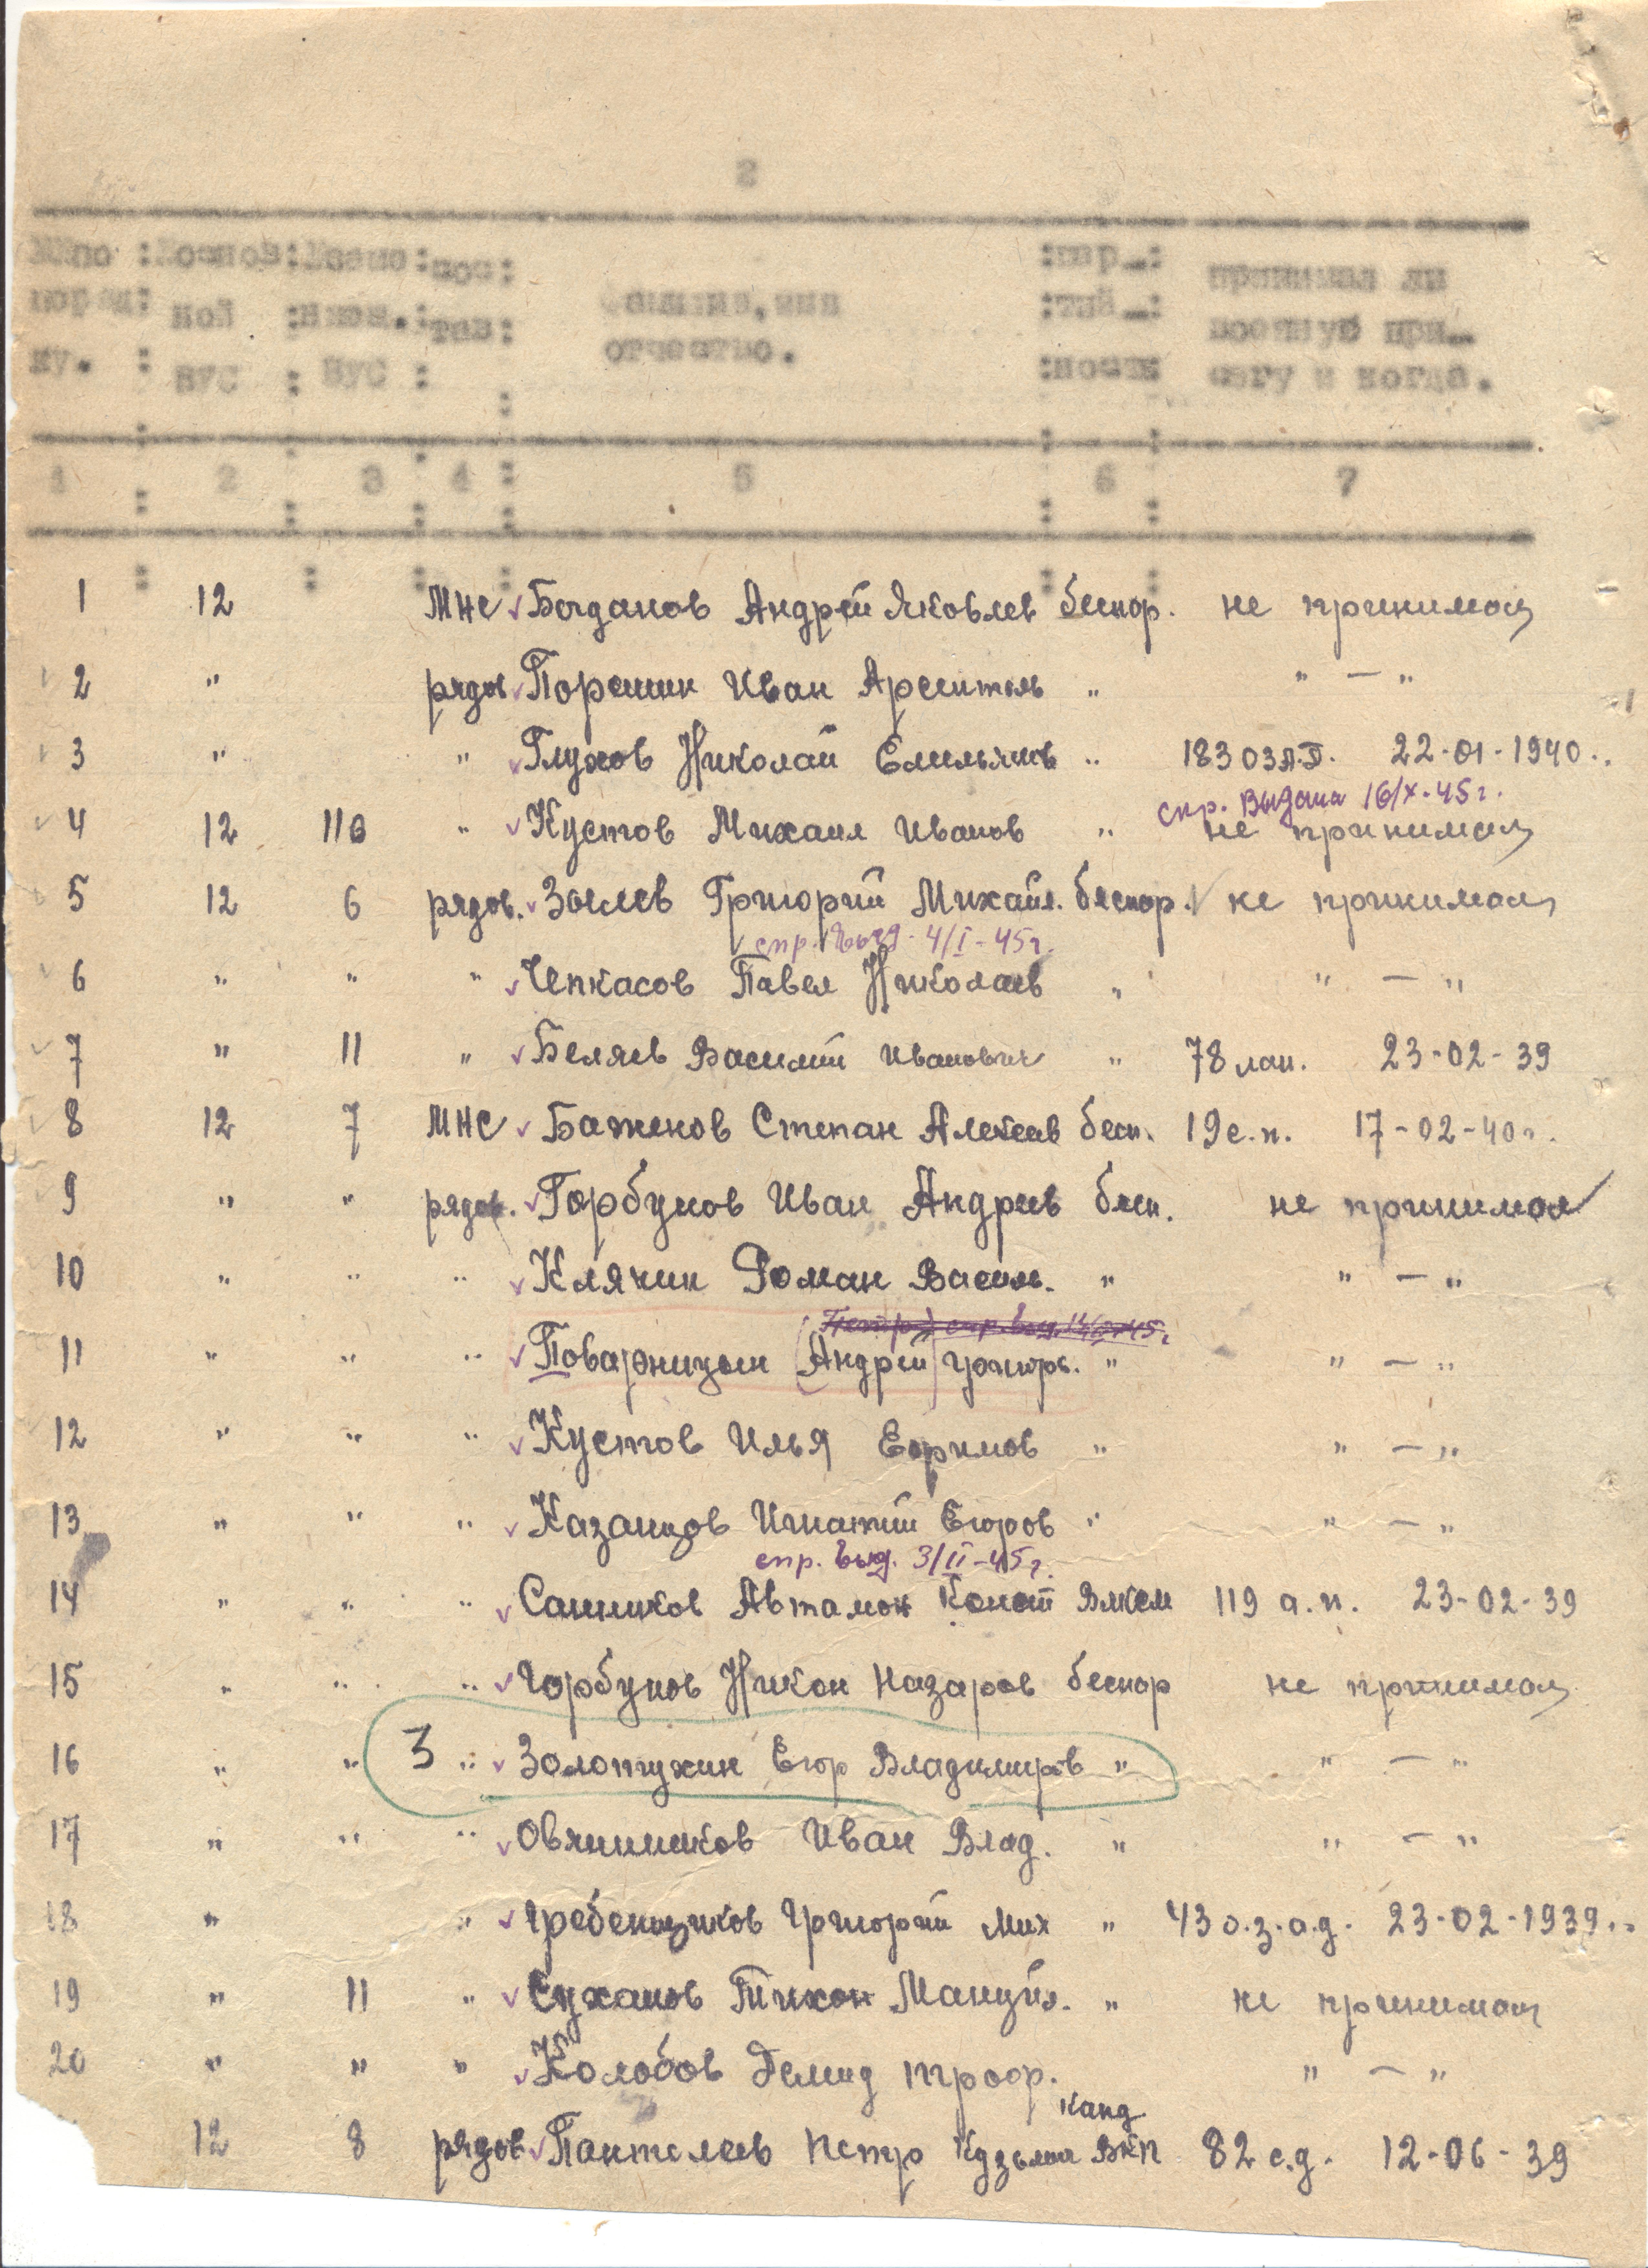 2
№№по :Основ:Взаим:сос:
поряд: ной :нзам.:тав: Фамилия, имя :пар-: принимал ли
ку. : ВУС : ВУС : отчество. :тий-: военную при-
:ности сягу и когда.
1 : 2 : 3 : 4 : 5 : 6 : 7
1 12 МНС Богданов Андрей Яковлев беспар. не принимал
2 " рядов Порошин Иван " " — "
3 " " Глухов Николай Емельянов " 183 ОЗА.Д. 22-01-1940..
спр. выдана 16/X-45 г.
4 12 116 " Кустов Михаил Иванов " не принимал
5 12 6 рядов. Зыслев Григорий Михайл. беспар. не принимал
спр. выд. 4/I-45 г.
6 " " " Чепкасов Павел Николаев " " — "
7 " 11 " Беляев Василий Иванович " 78 лап. 23-02-39
8 12 7 МНС Баженов Степан Алексеев бесп. 19 с.п. 17-02-40 г.
9 " " рядов. Горбунов Иван Андреев бесп. не принимал
10 " " " Клячин Роман Василь. " " — "
(Петр) спр. выд. 45 г.
11 " " " Поварницын (Андрей) Григорь. " " — "
12 " " " Кустов Илья Ефимов " " — "
13 " " " Казанцов Игнатий Егоров " " — "
спр. выд. 3/II-45 г.
14 " " " Санников Автамон Конст ВЛКСМ 119 а.п. 23-02-39
15 " " " Горбунов Никон Назаров беспар не принимал
16 " " 3 " Золотухин Егор Владимиров " " — "
17 " " " Овчинников Иван Влад. " " — "
18 " " Гребенщиков Григорий Мих " 43 о.з.а.д. 23-02-1939..
19 " 11 " Суханов Тихон Мануйл. " не принимал
20 " " " Колобов Демид Троф. " — "
канд
12 8 рядов Пантелеев Петр Кузьмич ВКП 82 с.д. 12-06-39